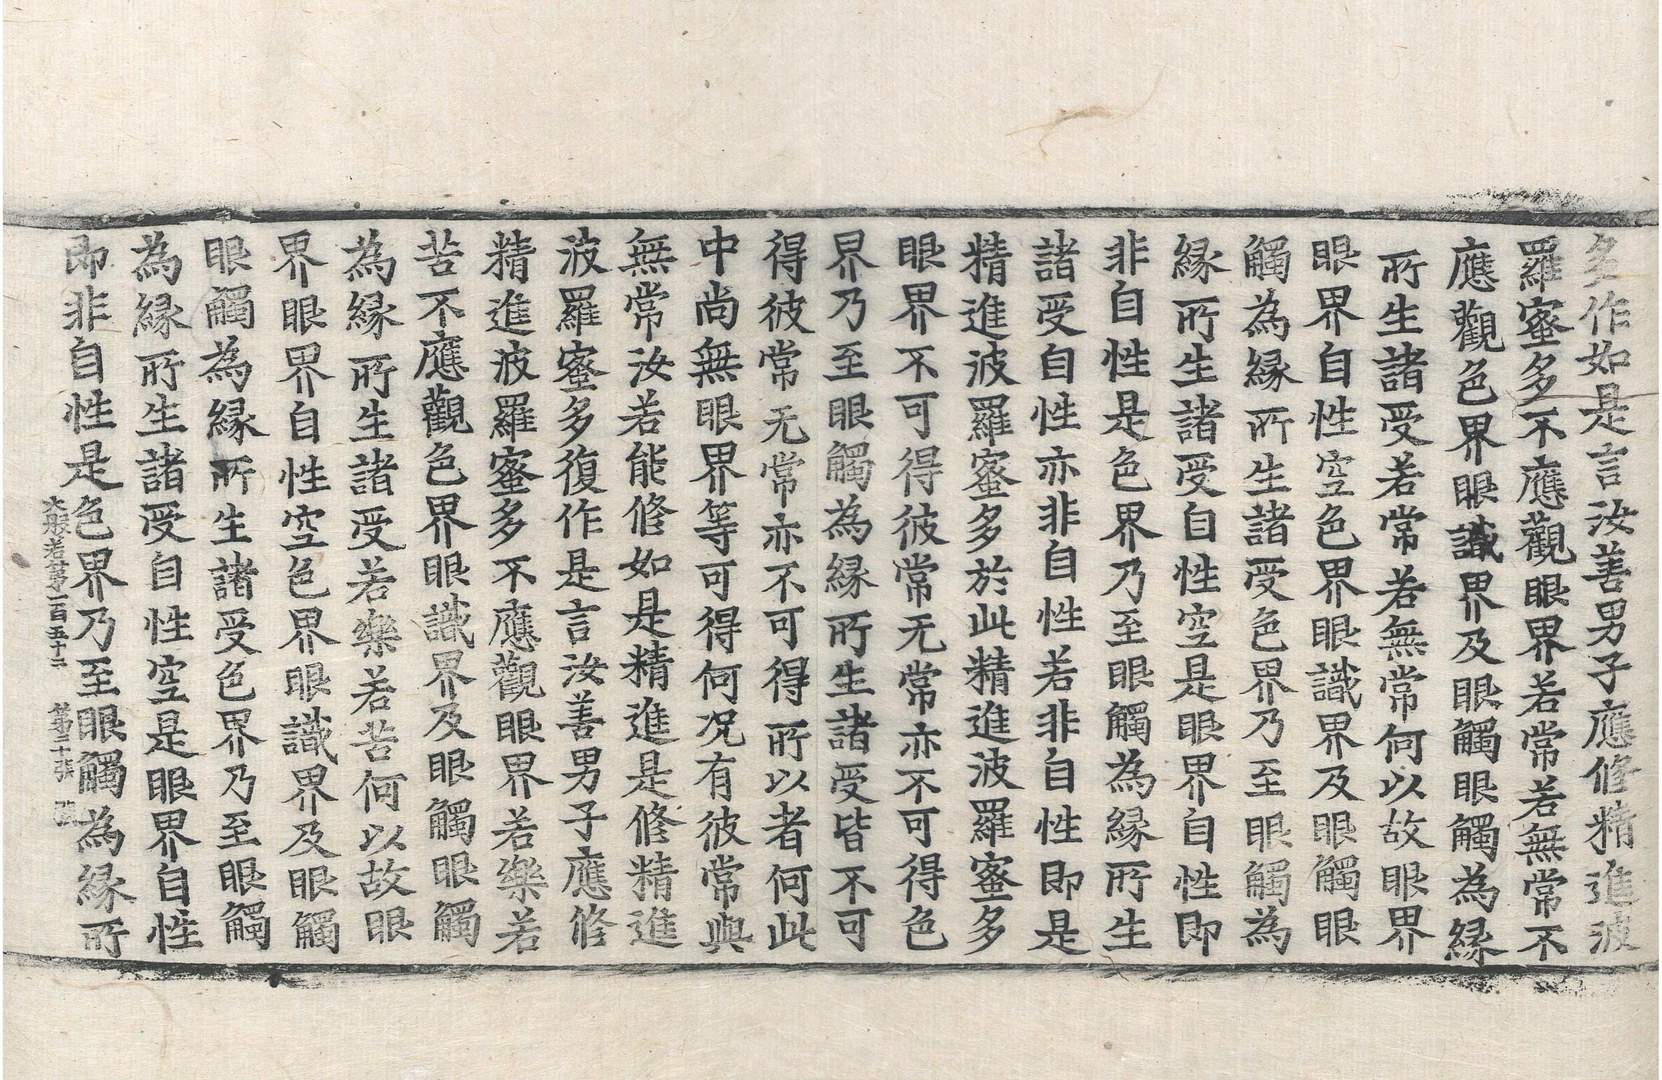 多作如是言汝善男子應修精進波
羅蜜多不應觀眼界若常若無常不
應觀色界眼識界及眼觸眼觸為緣
所生諸受若常若無常何以故眼界
眼界自性空色界眼識界及眼觸眼
觸為緣所生諸受色界乃至眼觸為
緣所生諸受自性空是眼界自性即
非自性是色界乃至眼觸為緣所生
諸受自性亦非自性若非自性即是
精進波羅蜜多於此精進波羅蜜多
眼界不可得彼常无常亦不可得色
界乃至眼觸為緣所生諸受皆不可
得彼常无常亦不可得所以者何此
中尚無眼界等可得何况有彼常與
無常汝若能修如是精進是修精進
波羅蜜多復作是言汝善男子應修
精進波羅蜜多不應觀眼界若樂若
苦不應觀色界眼識界及眼觸眼觸
為緣所生諸受若樂若苦何以故眼
界眼界自性空色界眼識界及眼觸
眼觸為緣所生諸受色界乃至眼觸
為緣所生諸受自性空是眼界自性
即非自性是色界乃至眼觸為緣所
大般若第一百五十二